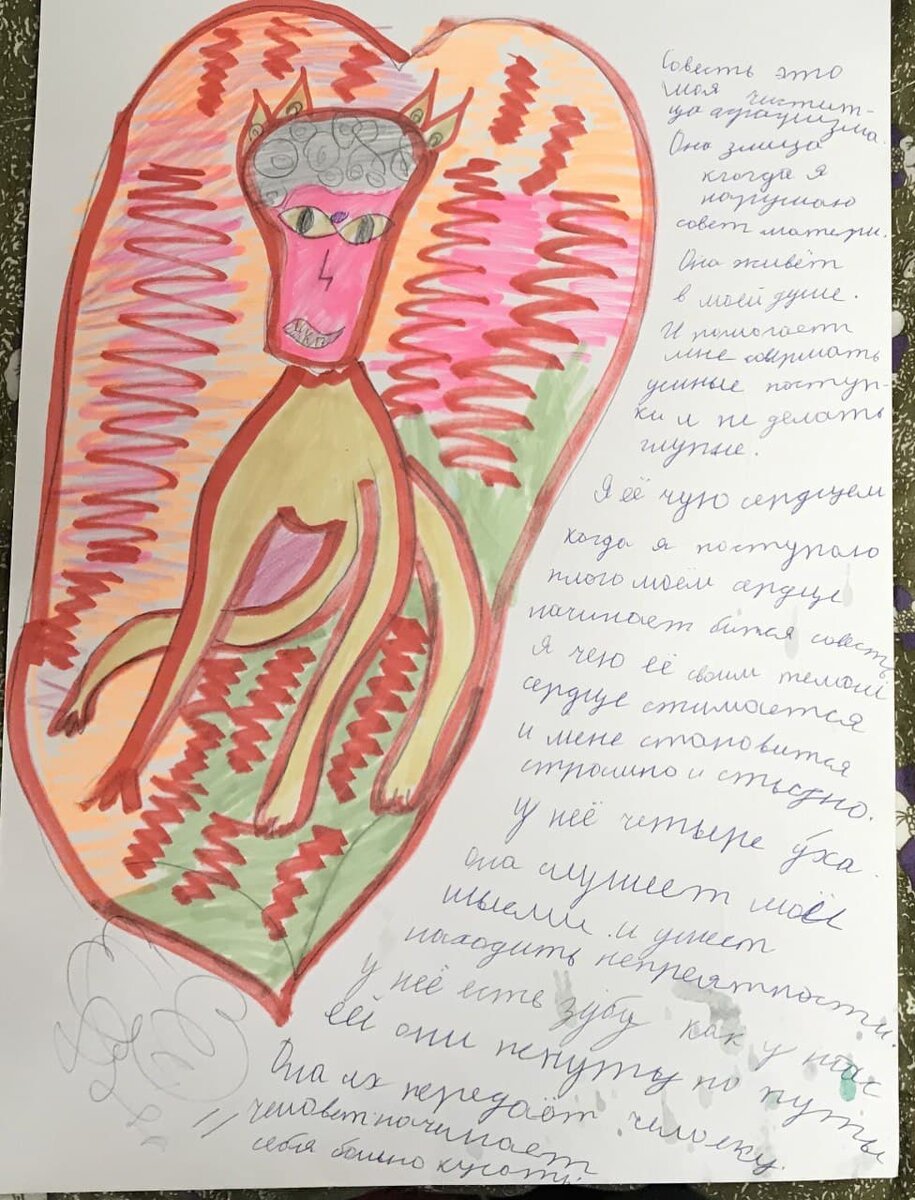 Совесть это
моя частит-
ца организма.
Она злица
когда я
нарушаю
совет матери.
Она живёт
в моей душе.
И помогает
мне совершать
умные поступ-
ки и не делать
глупые.
Я её чую сердцем
когда я поступаю
плого моём сердце
начинает битса совесть
Я чею её своим телом
сердце сжимается
и мене становится
страшно и стыдно.
У неё четыре уха.
Она слушает мои
мысли и умеет
находить неприятности.
У неё есть зубы как у нас
ей они нужны
Она их передаёт человеку.
человек начинает
себя болно кусать.